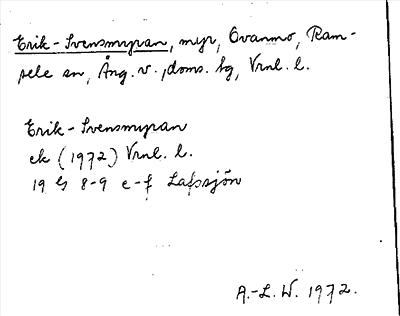 Erik-Svensmyran, myr, Ovanmo, Ram-
sele sn, Ång. v., doms. hg, Vrnl. l.
Erik-Svensmyran
ek (1972) Vrnl. l.
19 G 8-9 e-f Lafssjön
A.-L. W. 1972.